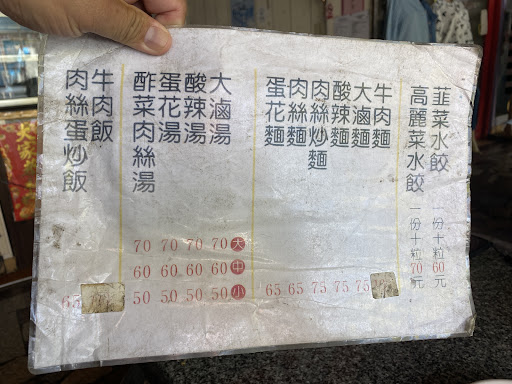 韭菜水餃 一份十粒60元
高麗菜水餃 一份十粒70元
牛肉麵
大滷麵 75
酸辣麵 75
肉絲炒麵 75
肉絲麵 65
蛋花麵 65
大 中 小
大滷湯 70 60 50
酸辣湯 70 60 50
蛋花湯 70 60 50
酢菜肉絲湯 70 60 50
牛肉飯
肉絲蛋炒飯 65